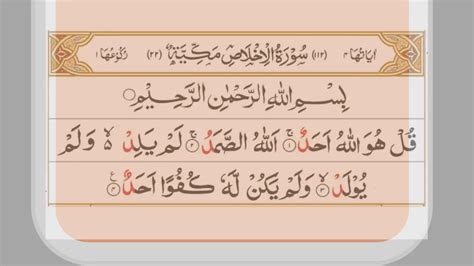 اٰیَاتُهَا ۴ (۱۱۲) سُوْرَةُ الْاِخْلَاصِ مَكِّیَّةٌ (۲۲) رُكُوْعُهَا ۱
بِسْمِ اللّٰهِ الرَّحْمٰنِ الرَّحِیْمِ
قُلْ هُوَ اللّٰهُ اَحَدٌ ۱ اَللّٰهُ الصَّمَدُ ۲ لَمْ یَلِدْ ۙ۬ وَ لَمْ
یُوْلَدْ ۳ وَ لَمْ یَكُنْ لَّهٗ كُفُوًا اَحَدٌ ۴